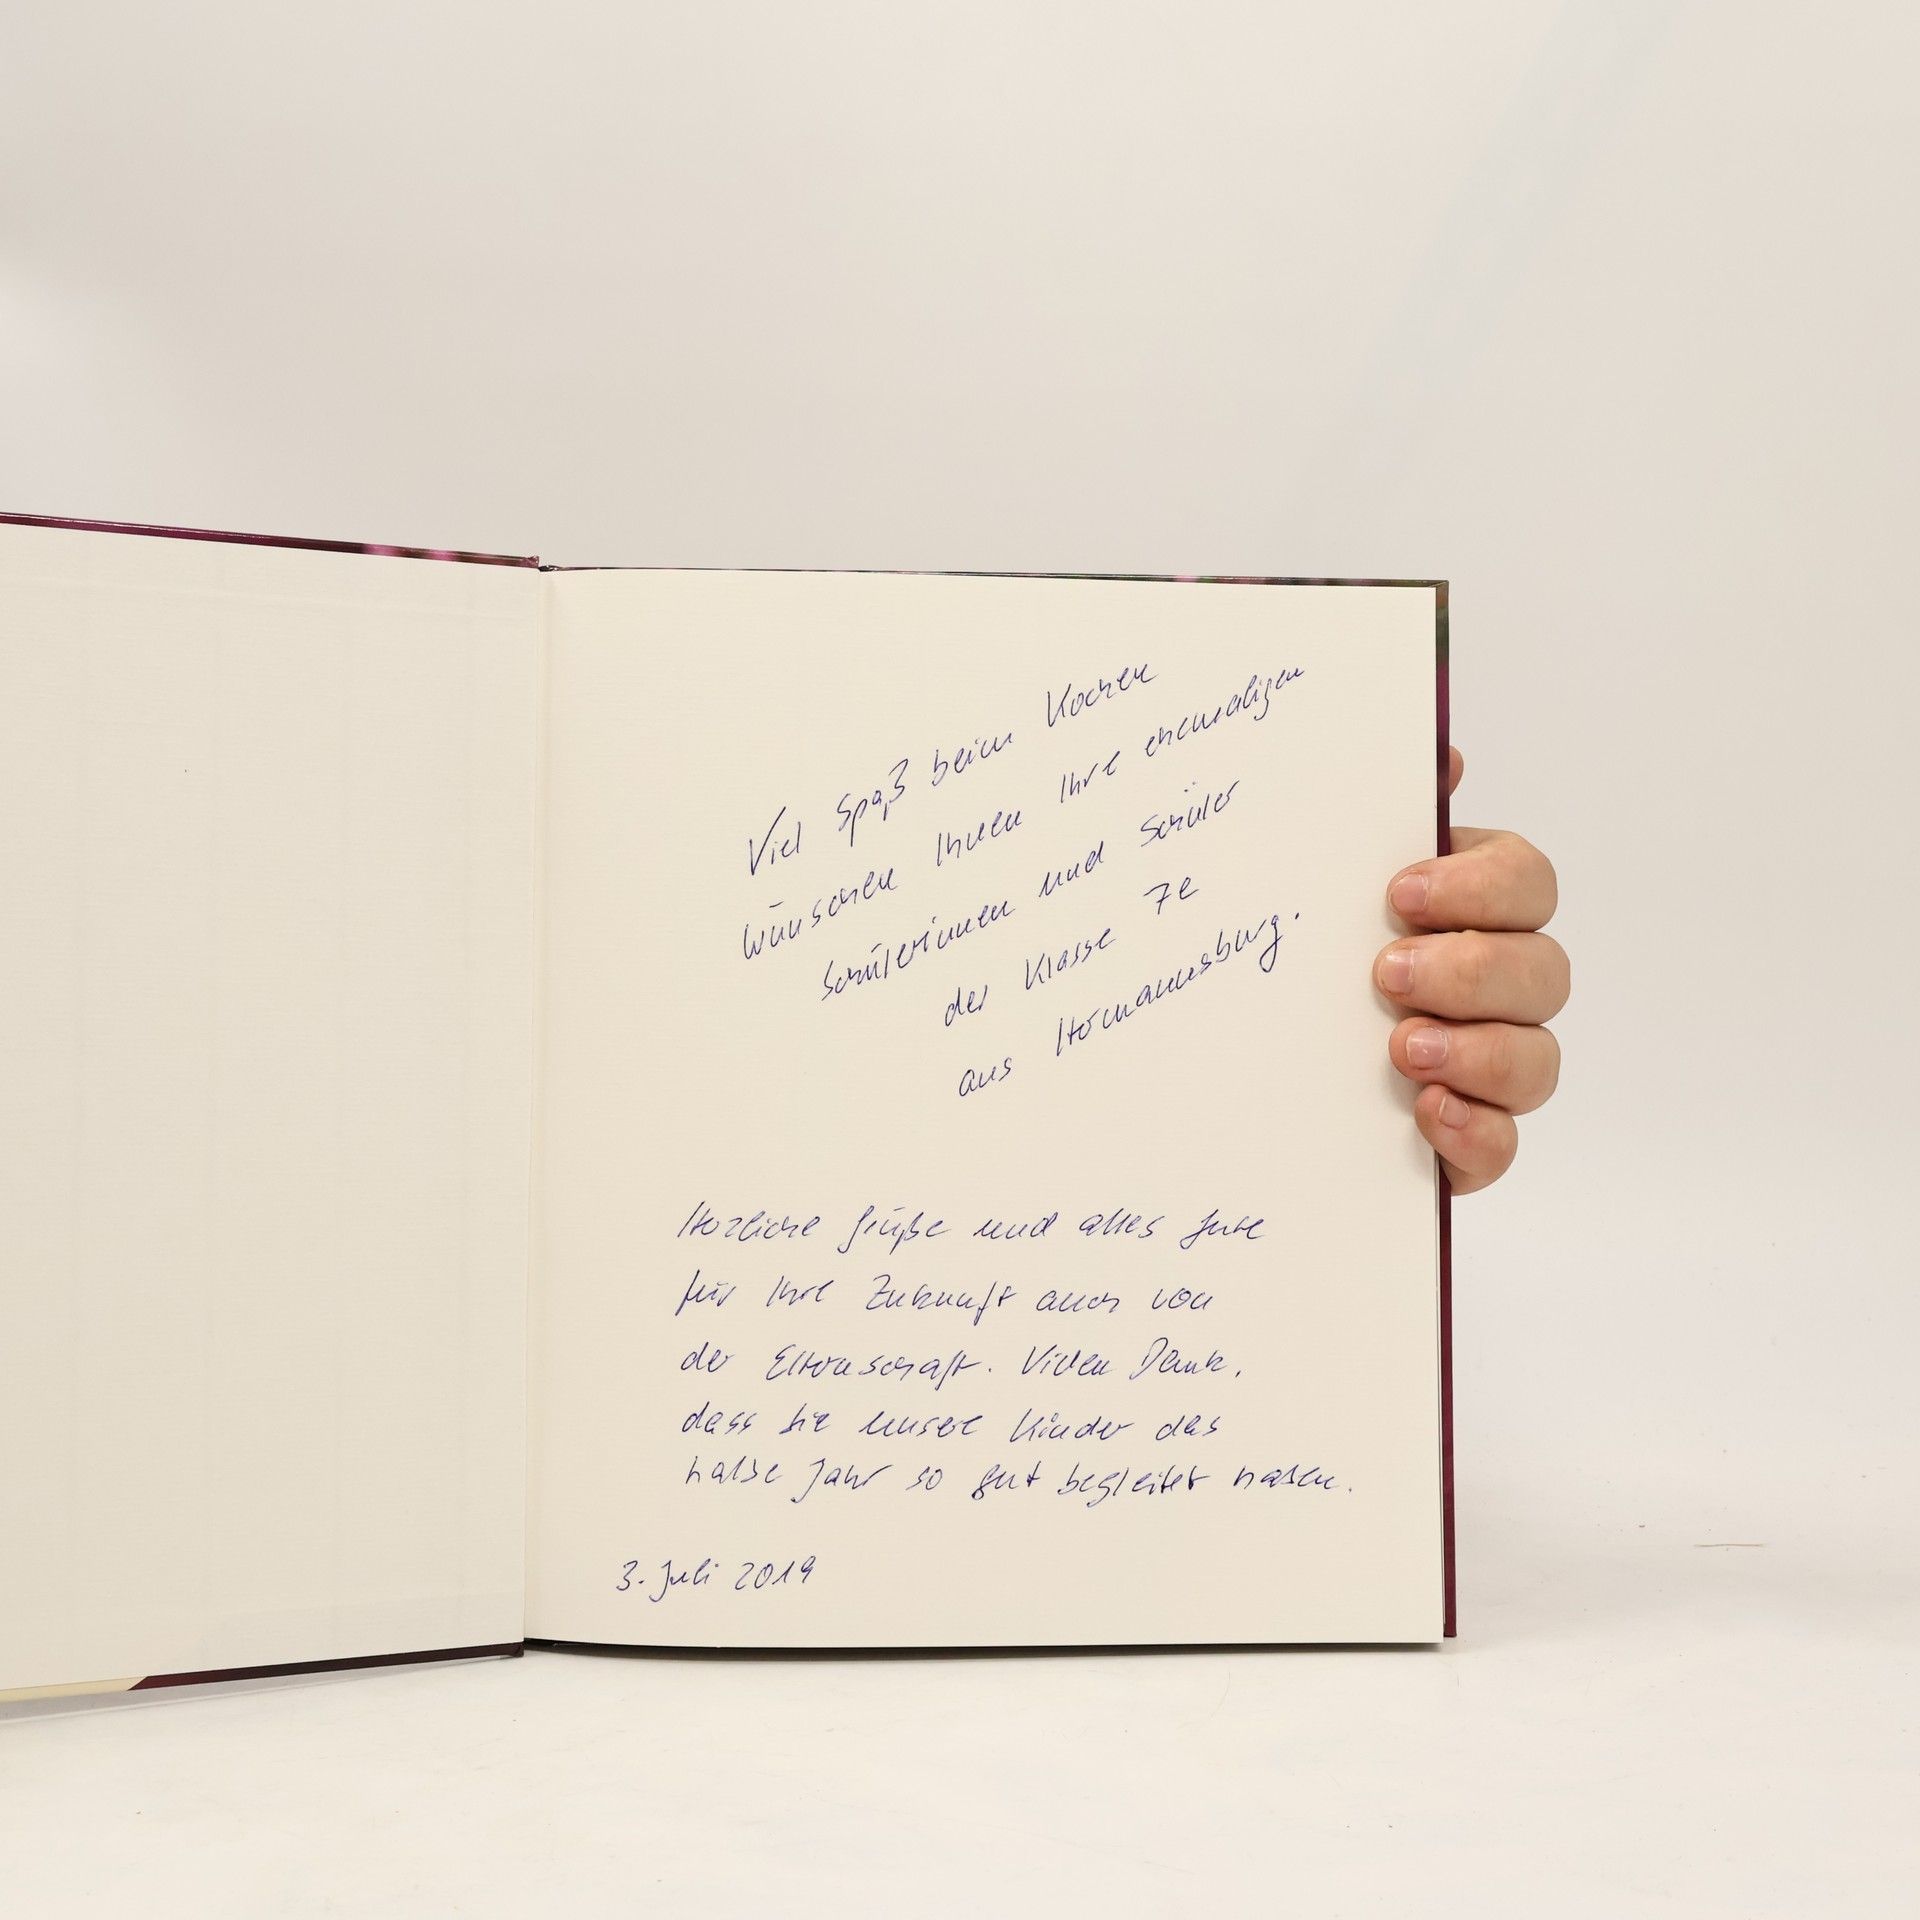 Viel Spaß beim Kochen
wünschen Ihnen Ihre ehemaligen
Schülerinnen und Schüler
der Klasse 7e
aus Hermannsburg.
Herzliche Grüße und alles Gute
für Ihre Zukunft auch von
der Elternschaft. Vielen Dank,
dass Sie unsere Kinder das
halbe Jahr so gut begleitet haben.
3. Juli 2019